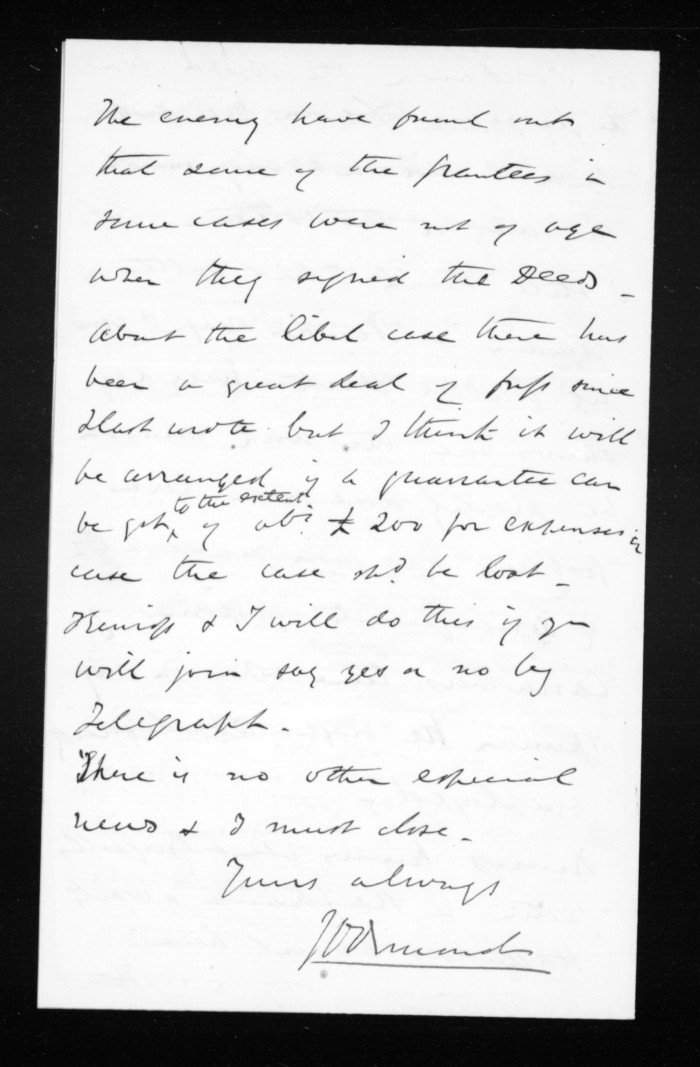 The enemy have found out
that some of the grantees in
some cases were not of age
when they signed the Deeds -
About the libel case there has
been a great deal of fuss since
I last wrote but I think it will
be arranged if a guarrantee can
be got to the extent of abt. £200 for expenses in
case the case shd. be lost -
& I will do this if you
will join say yes or no by
Telegraph -
There is no other especial
news & I must close -
Yours always
JD Ormond